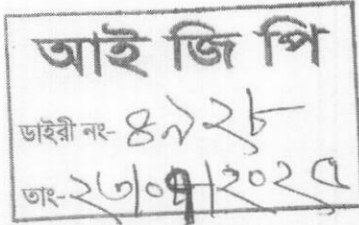 আই জি পি
ডাইরী নং- ৪৯২৮
তাং- ২৩/০৭/২০২৫